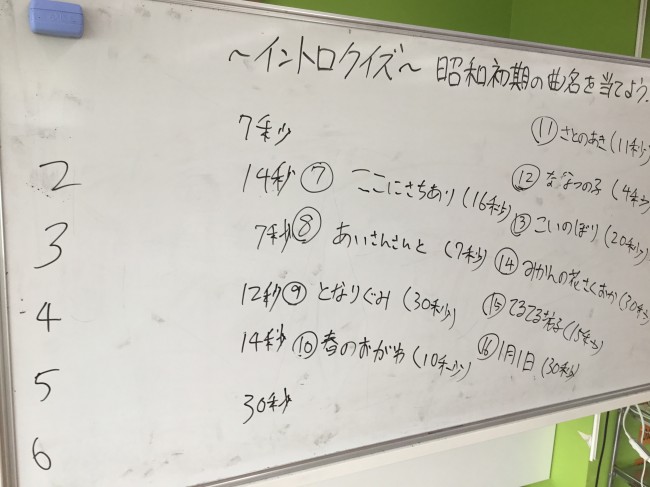 ~イントロクイズ~ 昭和初期の曲名を当てよう.
7秒
2 14秒
3 7秒
4 12秒
5 14秒
6 30秒
⑦ ここにさちあり (16秒)
⑧ あいさんさんと (7秒)
⑨ となりぐみ (30秒)
⑩ 春のおがわ (10秒)
⑪ さとのあき (11秒)
⑫ ななつの子 (4秒)
⑬ こいのぼり (20秒)
⑭ みかんの花さくおか (30秒)
⑮ てるてる (15秒)
⑯ 1月1日 (30秒)